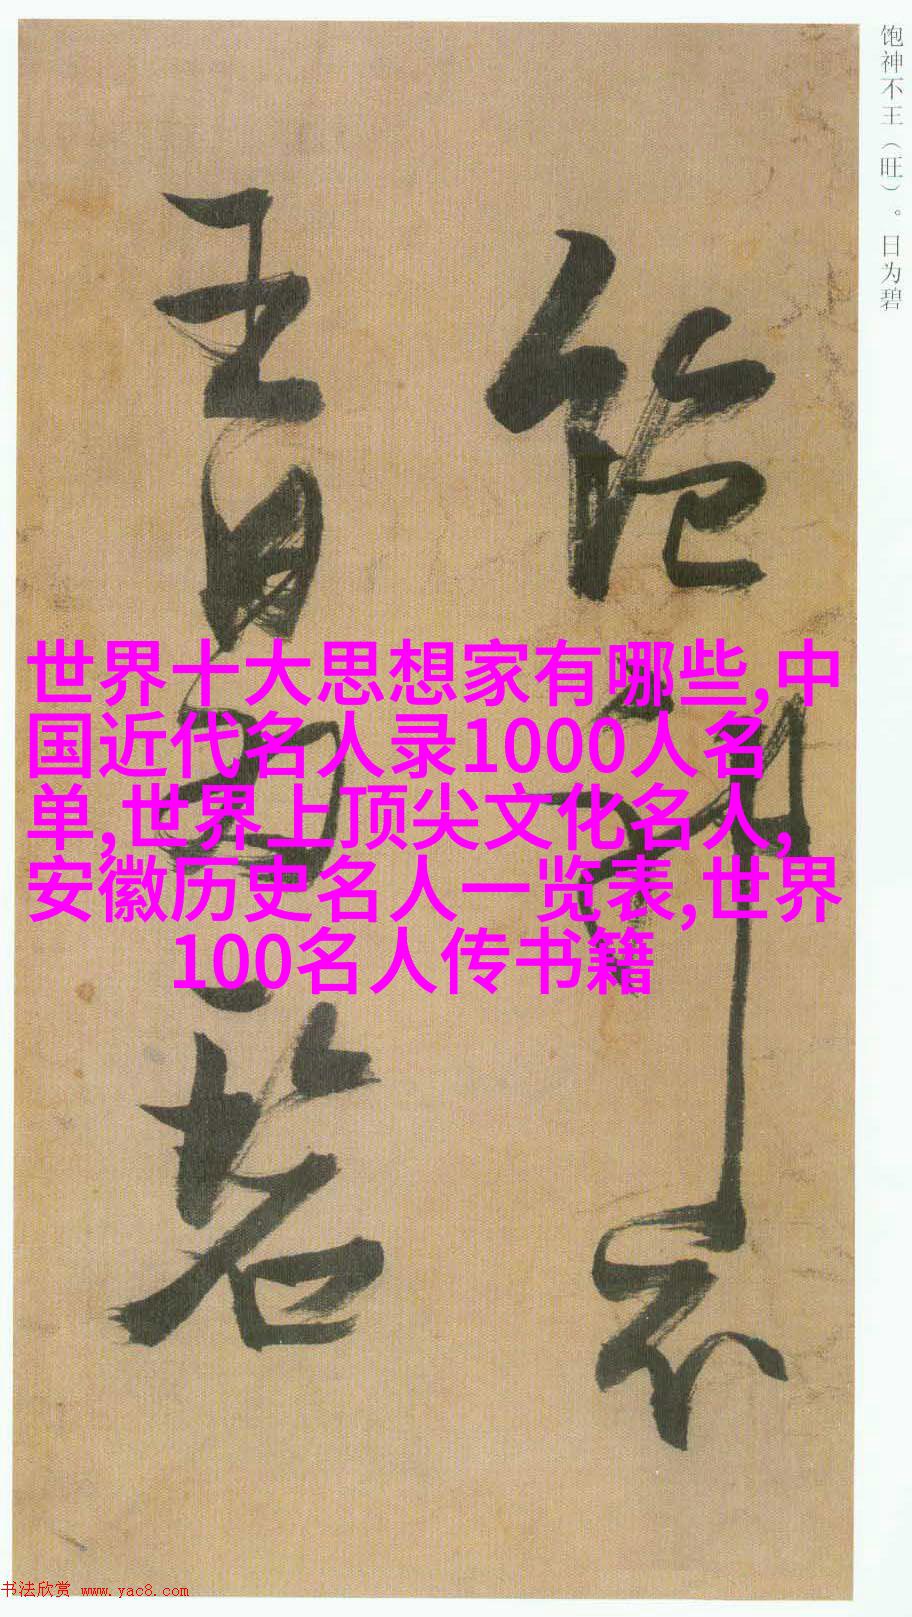 饱神不王（旺）。日为碧
饱神不
王日为碧
世界十大思想家有哪些,中
国近代名人录1000人名
单,世界上顶尖文化名人,
安徽历史名人一览表,世界
100名人传书籍
书法欣赏 www.yac8.com